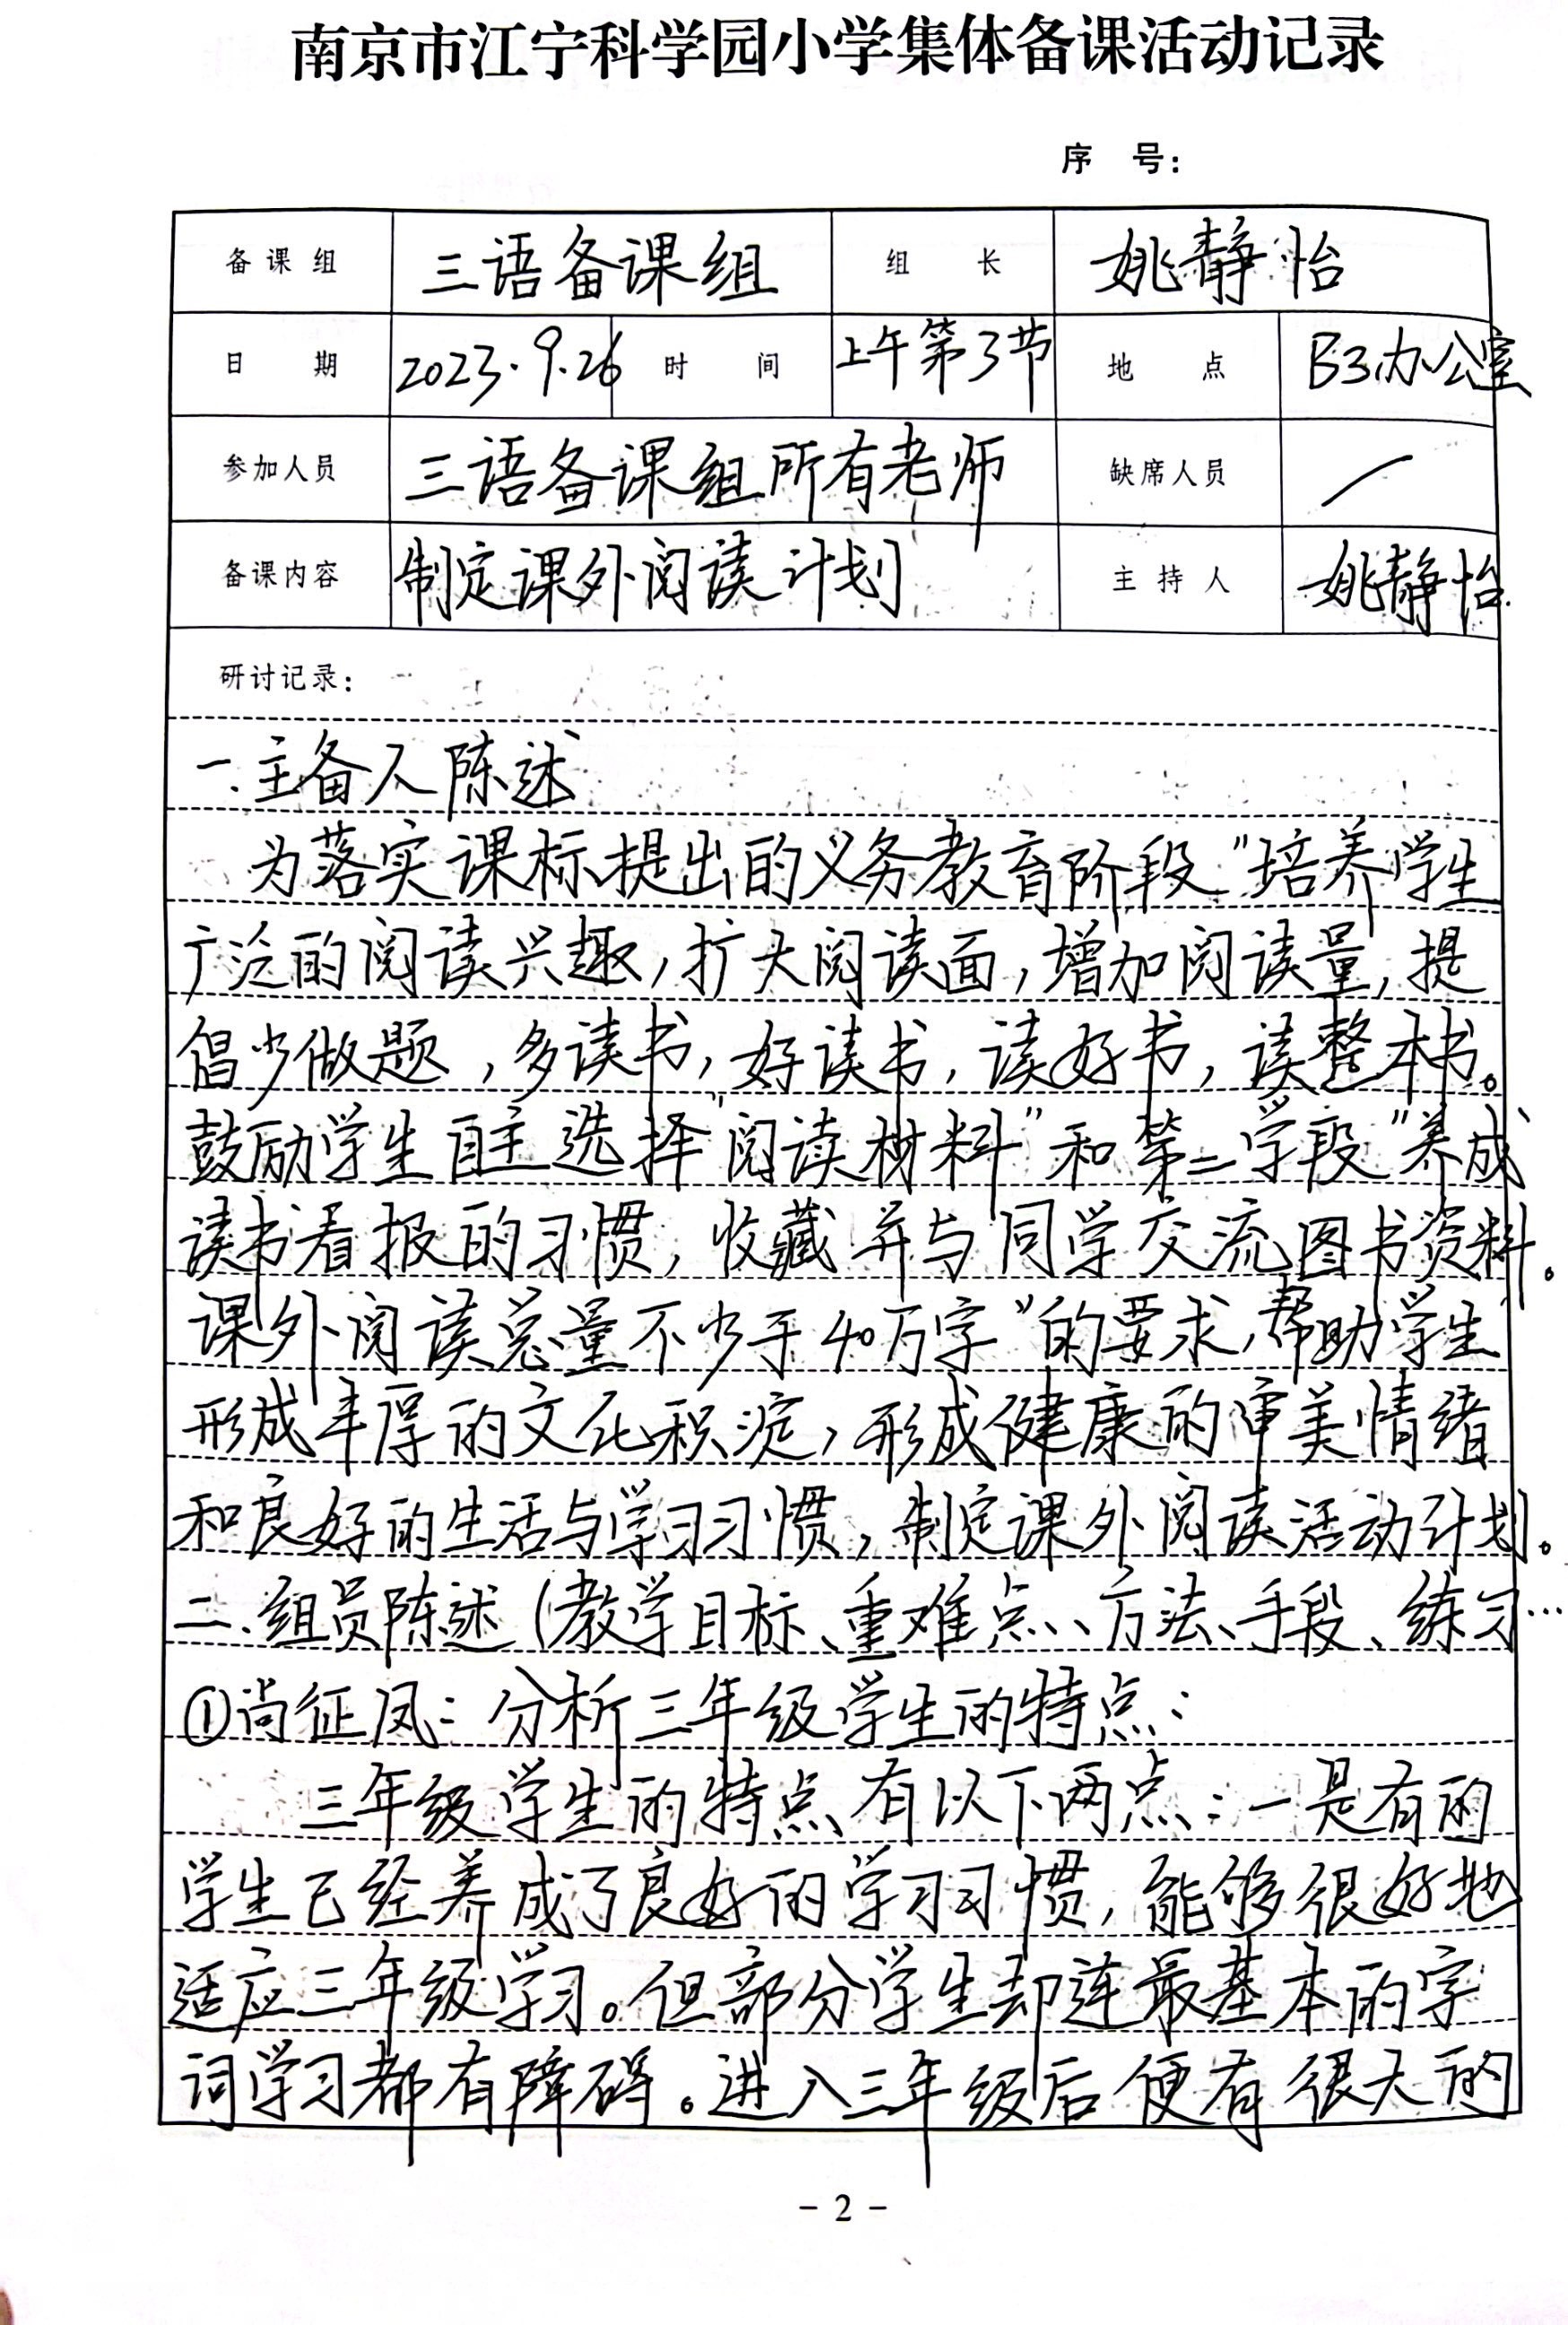 南京市江宁科学园小学集体备课活动记录
序 号:
备课组 三语备课组 组 长 姚静怡
日 期 2023.9.26 时 间 上午第3节 地 点 B3办公室
参加人员 三语备课组所有老师 缺席人员 /
备课内容 制定课外阅读计划 主持人 姚静怡
研讨记录:
一.主备人陈述
为落实课标提出的义务教育阶段“培养学生
广泛的阅读兴趣,扩大阅读面,增加阅读量,提
倡少做题,多读书,好读书,读好书,读整本书。
鼓励学生自主选择阅读材料”和第二学段“养成
读书看报的习惯,收藏并与同学交流图书资料。
课外阅读总量不少于40万字”的要求,帮助学生
形成丰厚的文化积淀,形成健康的审美情绪
和良好的生活与学习习惯,制定课外阅读活动计划。
二.组员陈述(教学目标、重难点、方法、手段、练习…
①尚征凤:分析三年级学生的特点:
三年级学生的特点有以下两点:一是有的
学生已经养成了良好的学习习惯,能够很好地
适应三年级学习。但部分学生却连最基本的字
词学习都有障碍。进入三年级后便有很大的
- 2 -